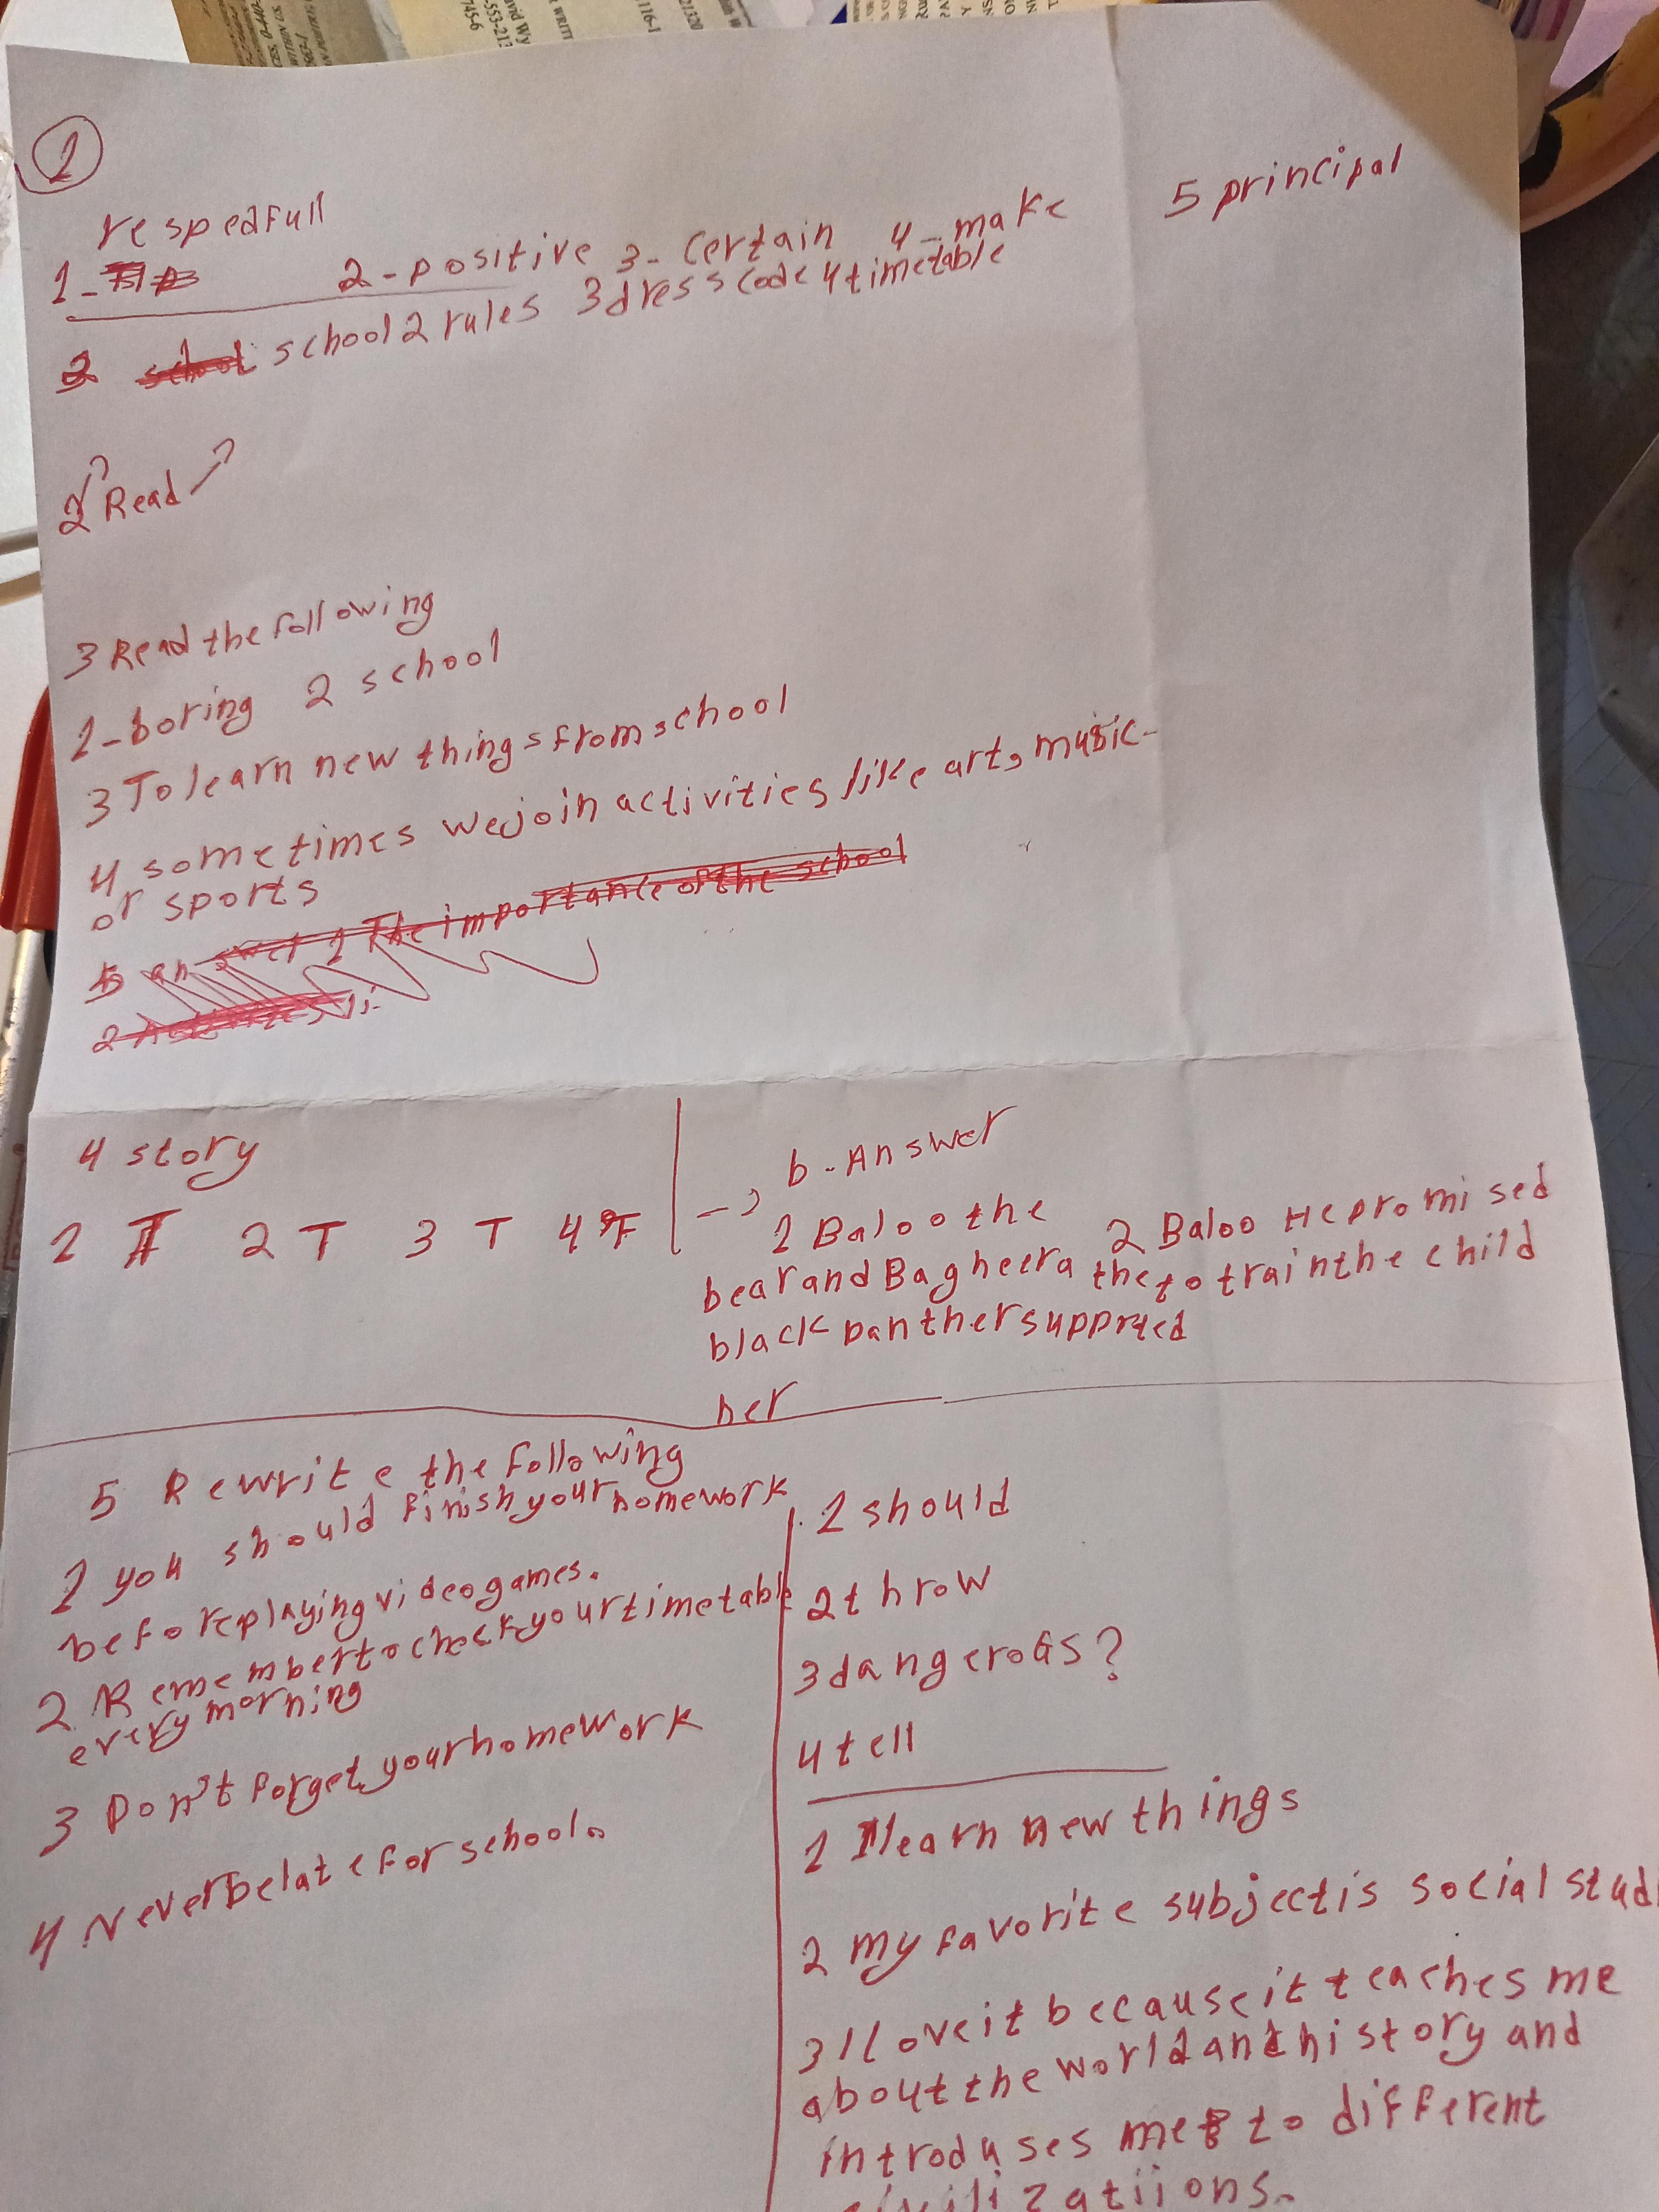 1
respectfull
1- 2-positive 3- certain 4-make 5 principal
2 school school 2 rules 3 dress code 4 timetable
2 Read
3 Read the following
1-boring 2 school
3 To learn new things from school
4 sometimes we join activities like art, music-
or sports
5 answer 1 The importance of the school
4 story
2 T 3 T 4 F
b-Answer
1 Baloo the
bear and Bagheera the
black panther supprted
her
2 Baloo He promised
to train the child
5 Rewrite the following
1 you should finish your homework
before playing video games.
2 Remember to check your timetable
every morning
3 Don't forget your homework
4 Never be late for school.
1 should
2 throw
3 dangeroGs?
4 tell
1 I learn new things
2 my favorite subject is social stud
3 I love it because it teaches me
about the world and history and
introduses me to different
civilizatiions.